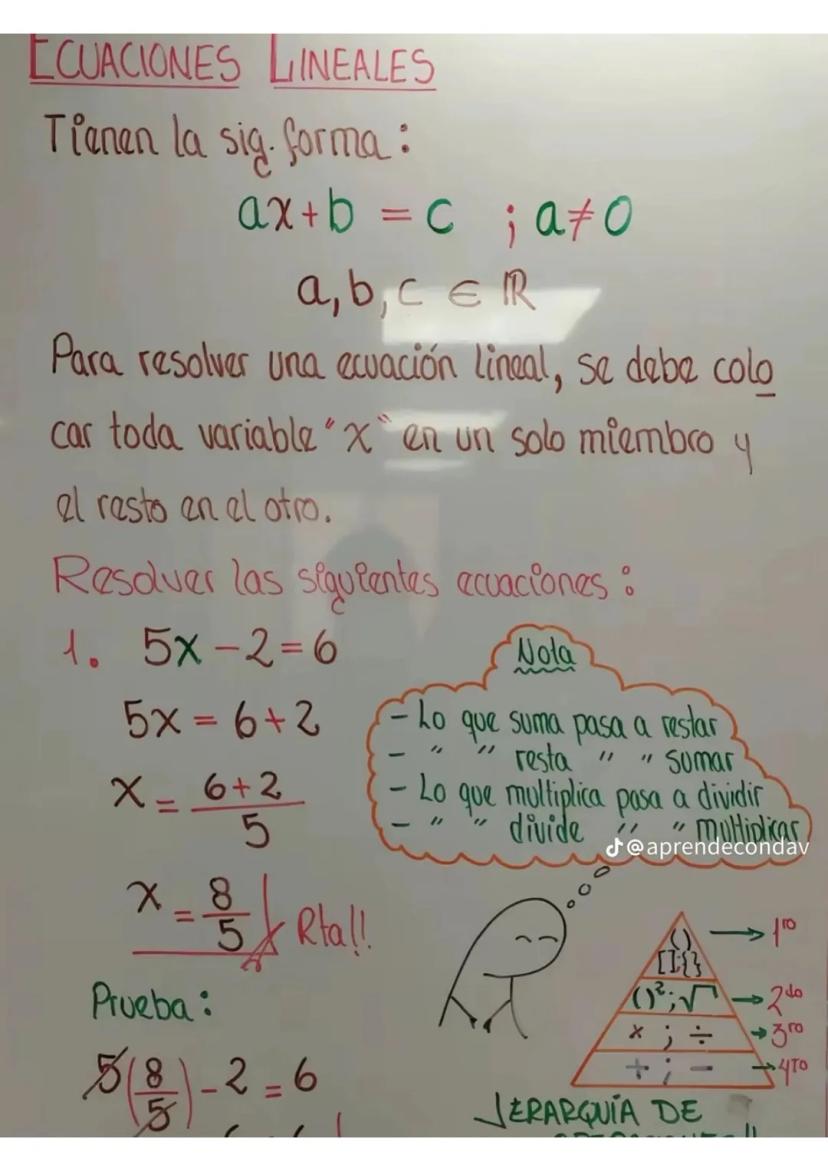 ECUACIONES LINEALES
Tienen la sig. forma:
ax+b = c ; a≠0
a, b, c ∈ ℝ
Para resolver una ecuación lineal, se debe colo
car toda variable "x" en un solo miembro y
el resto en el otro.
Resolver las siguientes ecuaciones:
1. 5x - 2 = 6
5x = 6+2
x = (6+2)/5
x = 8/5 Rta!!
Prueba:
5(8/5) - 2 = 6
Nota
- Lo que suma pasa a restar
- " " resta " " sumar
- Lo que multiplica pasa a dividir
- " " divide " " multiplicar
@aprendecondav
() []{} → 1ro
()²; √ → 2do
× ; ÷ → 3ro
+ ; - → 4to
JERARQUÍA DE